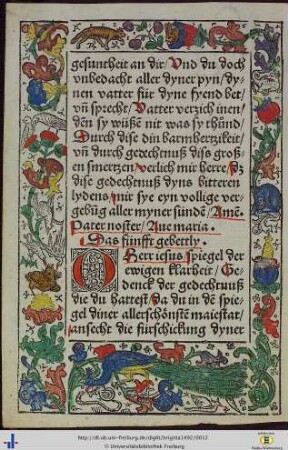 gesuntheit an dir/ Vnd du doch
vnbedacht aller dyner pyn/ dy-
nen vatter für dyne fyend bet/
vñ sprecht/ Vatter verzich inen/
den sy wüße nit was sy thünd/
Durch dise din barmhertzikeit/
vñ durch gedechtnuß diss groß-
en smertzen/ verlich mir herre/ dz
dise gedechtnuß dyns bitteren
lydens/ mir sye eyn vollige ver-
gebūg aller myner sünde/ Amē
Pater noster/ Aue maria.
Das fünfft gebettly.
O Herr iesus spiegel der
ewigen klarheit/ Ge-
denck der gedechtnuß
die du hattest/ da du in dē spie-
gel diner allerschönstē maiestat/
ansecht die fürschickung dyner
http://dl.ub.uni-freiburg.de/diglit/brigita1492/0012
© Universitätsbibliothek Freiburg